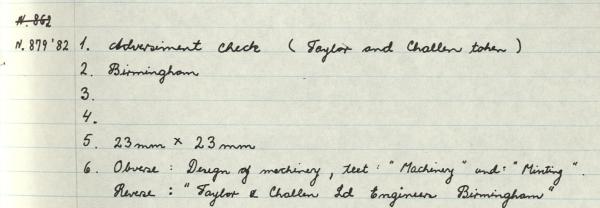 N. 862
N. 879 '82 1. Adversiment check ( Taylor and Challen token )
2. Birmingham
3.
4.
5. 23mm × 23mm
6. Obverse : Design of machinery, text : "Machinery" and : "Minting".
Reverse : "Taylor & Challen Ld Engineers Birmingham"